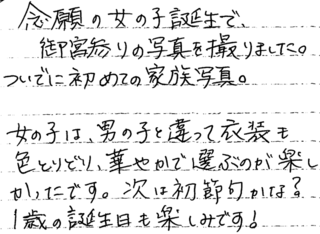 念願の女の子誕生で、
御宮参りの写真を撮りました。
ついでに初めての家族写真。
女の子は、男の子と違って衣装も
色とりどり、華やかで選ぶのが楽し
かったです。次は初節句かな？
1歳の誕生日も楽しみです！